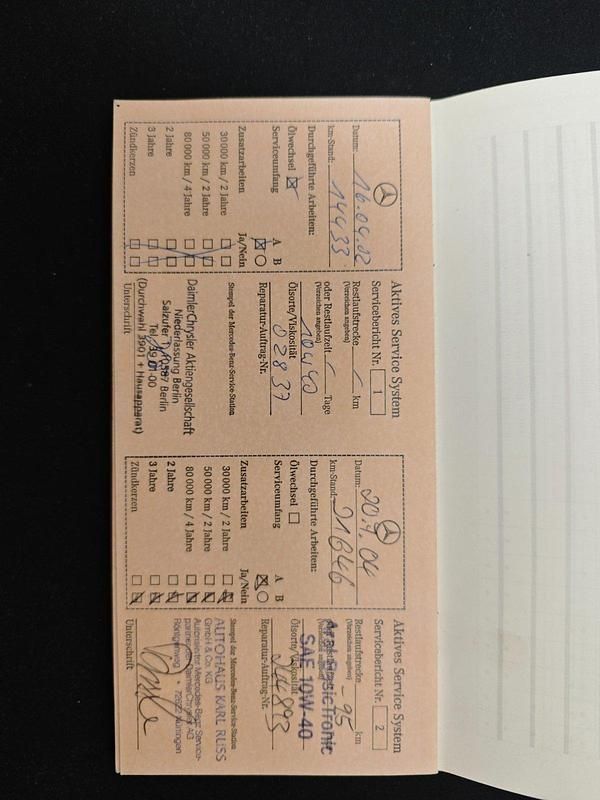 Aktives Service System
Datum: 16.04.02
km-Stand: 14433
Durchgeführte Arbeiten:
Ölwechsel
Serviceumfang A B
Zusatzarbeiten Ja/Nein
30 000 km / 2 Jahre
50 000 km / 2 Jahre
80 000 km / 4 Jahre
2 Jahre
3 Jahre
Zündkerzen
Servicebericht Nr. 1
Restlaufstrecke km
(Vorzeichen angeben)
oder Restlaufzeit Tage
(Vorzeichen angeben)
10W40
Ölsorte/Viskosität
02837
Reparatur-Auftrag-Nr.
Stempel der Mercedes-Benz-Service-Station
DaimlerChrysler Aktiengesellschaft
Niederlassung Berlin
Salzufer 10587 Berlin
Tel. 39 01-00
(Durchwahl 3901 + Hausapparat)
Unterschrift
Aktives Service System
Datum: 20.4.04
km-Stand: 21646
Durchgeführte Arbeiten:
Ölwechsel
Serviceumfang A B
Zusatzarbeiten Ja/Nein
30 000 km / 2 Jahre
50 000 km / 2 Jahre
80 000 km / 4 Jahre
2 Jahre
3 Jahre
Zündkerzen
Servicebericht Nr. 2
Restlaufstrecke -95 km
(Vorzeichen angeben)
SAE 10W-40
Ölsorte/Viskosität
Reparatur-Auftrag-Nr.
Stempel der Mercedes-Benz-Service-Station
AUTOHAUS KARL RUSS
GmbH & Co. KG
Autorisierter Mercedes-Benz Service-
partner DaimlerChrysler AG
72622 Nürtingen
Unterschrift